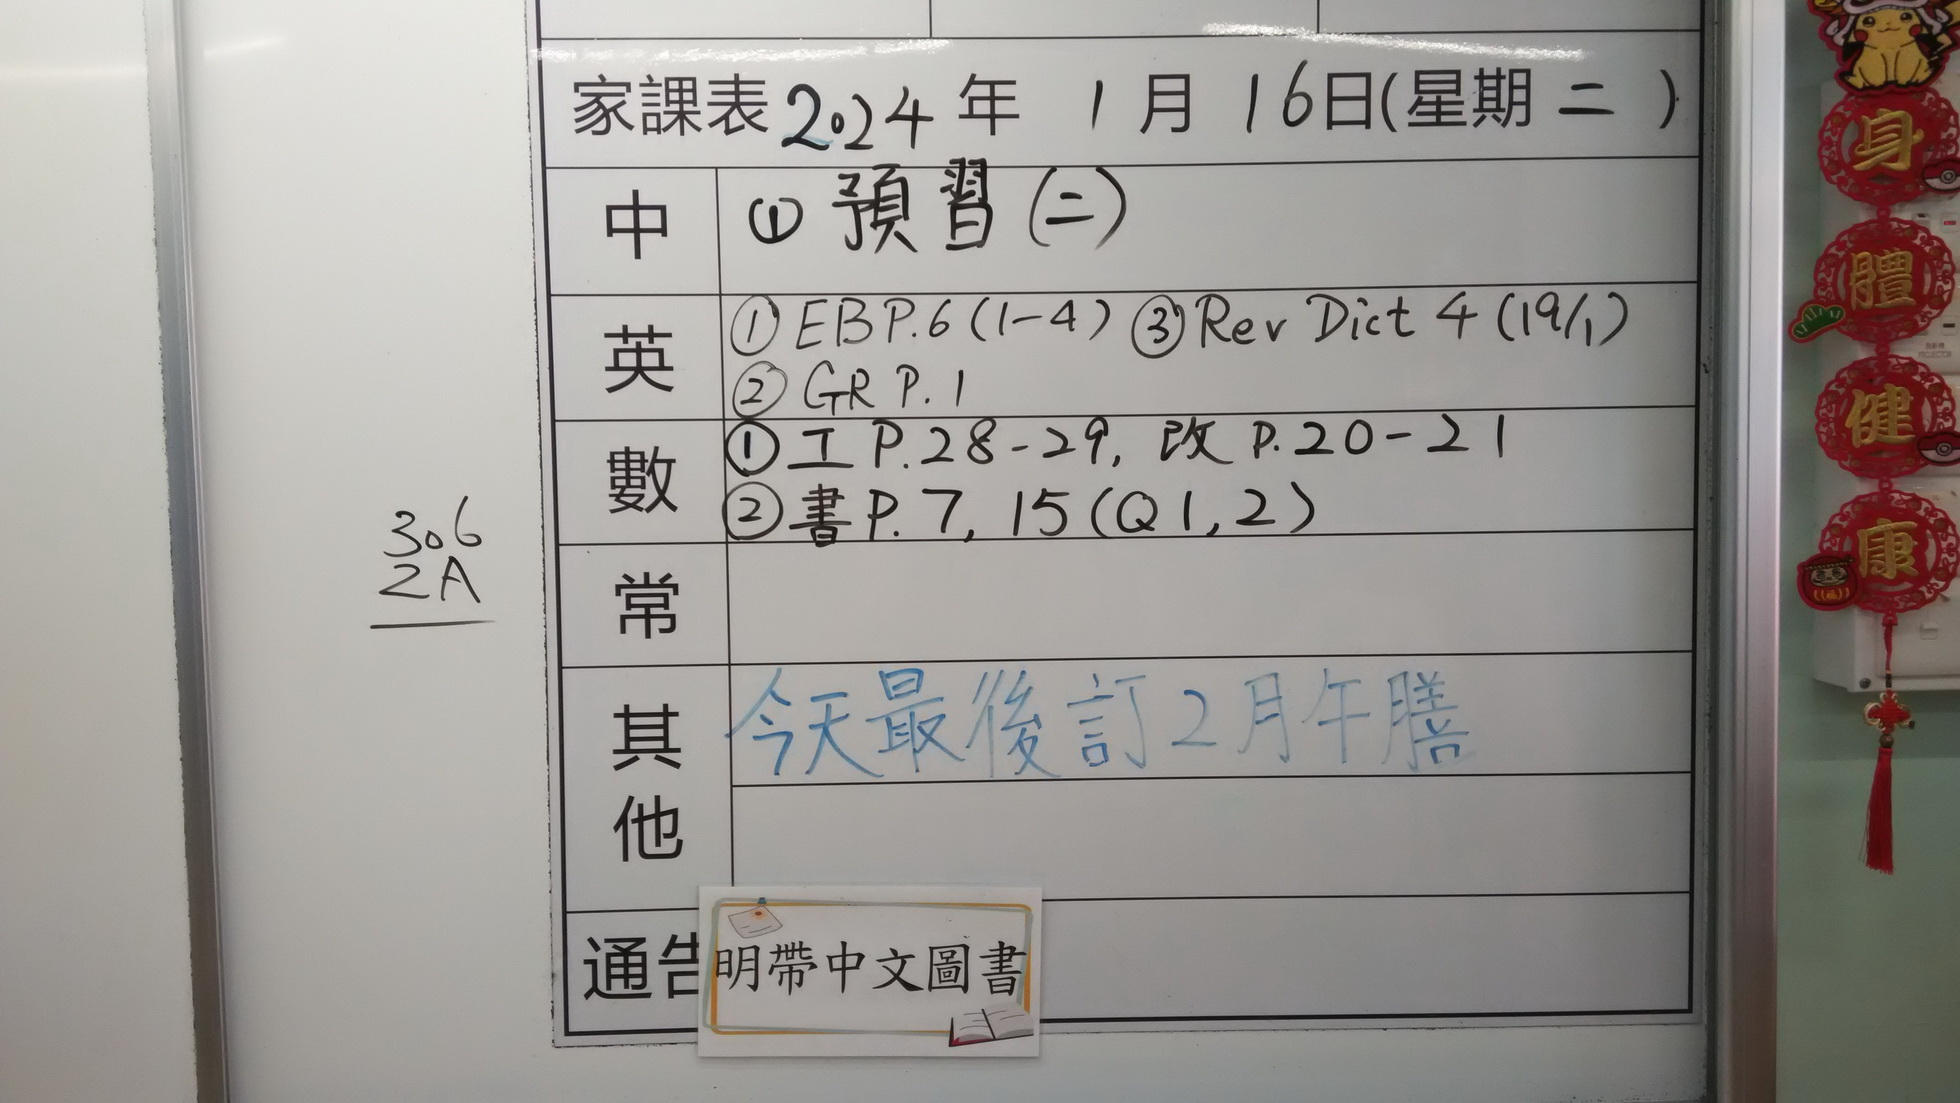 家課表 2024 年 1 月 16 日(星期 二 )
中 ① 預習 (二)
英 ① EB P.6 (1-4) ③ Rev Dict 4 (19/1)
② GR P.1
數 ① 工 P.28-29, 改 P.20-21
② 書 P.7, 15 (Q1,2)
常
其他 今天最後訂2月午膳
通告 明帶中文圖書
306
2A
身
體
健
康